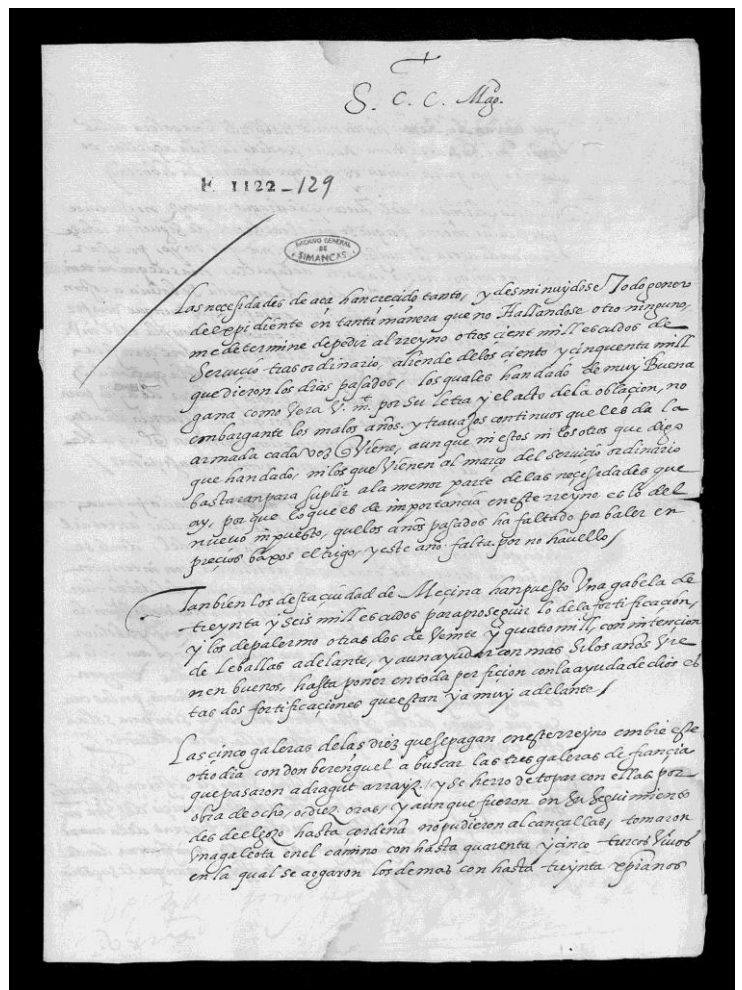 S. C. C. Mag.
E 1122-129
ARCHIVO GENERAL
DE
SIMANCAS
Las neçesidades de aca han crecido tanto, y desminuydose Todo genero
de expidiente en tanta manera que no Hallandose otro ninguno,
me determine de pedir al reyno otros cient mill escudos de
Servicio trasordinario, aliende de los ciento y cinquenta mill
que dieron los dias pasados, los quales han dado de muy Buena
gana como Vera V. m.t por Su letra y el acto de la oblacion, no
embargante los malos años. y travajos continuos que les da la
armada cada vez Viene, aunque ni estos ni los otros que digo
que han dado, ni los que Vienen al março del servicio ordinario
bastaran para suplir a la menor parte de las neçesidades que
ay, por que lo que es de importancia en este rreyno es lo del
nuevo inpuesto, que los años pasados ha faltado por baler en
preçios baxos el trigo, y este año falta por no havello /
Tanbien los desta çiudad de Meçina han puesto Una gabela de
treynta y seis mill escudos para proseguir lo de la fortificaçion,
y los de palermo otras dos de Veinte y quatro mill con intencion
de leballas adelante, y aun ayudar con mas Si los años Vie
nen buenos, hasta poner en toda perficion con la ayuda de dios es
tas dos fortificaçiones que estan ya muy adelante /
Las cinco galeras de las diez que se pagan en este rreyno embie este
otro dia con don berenguel a buscar las tres galeras de françia
que pasaron a dragut arrayz, y se herro de topar con ellas por
obra de ocho, o diez oras, y aunque fueron en Su Seguimiento
desde el gozo hasta cerdeña no pudieron alcançallas, tomaron
Una galeota en el camino con hasta quarenta y çinco turcos Vivos
en la qual se aogaron los demas con hasta treynta xpianos